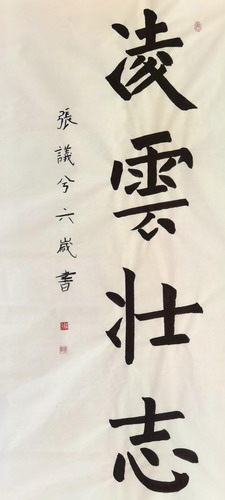 凌雲壯志
張議兮六歲書